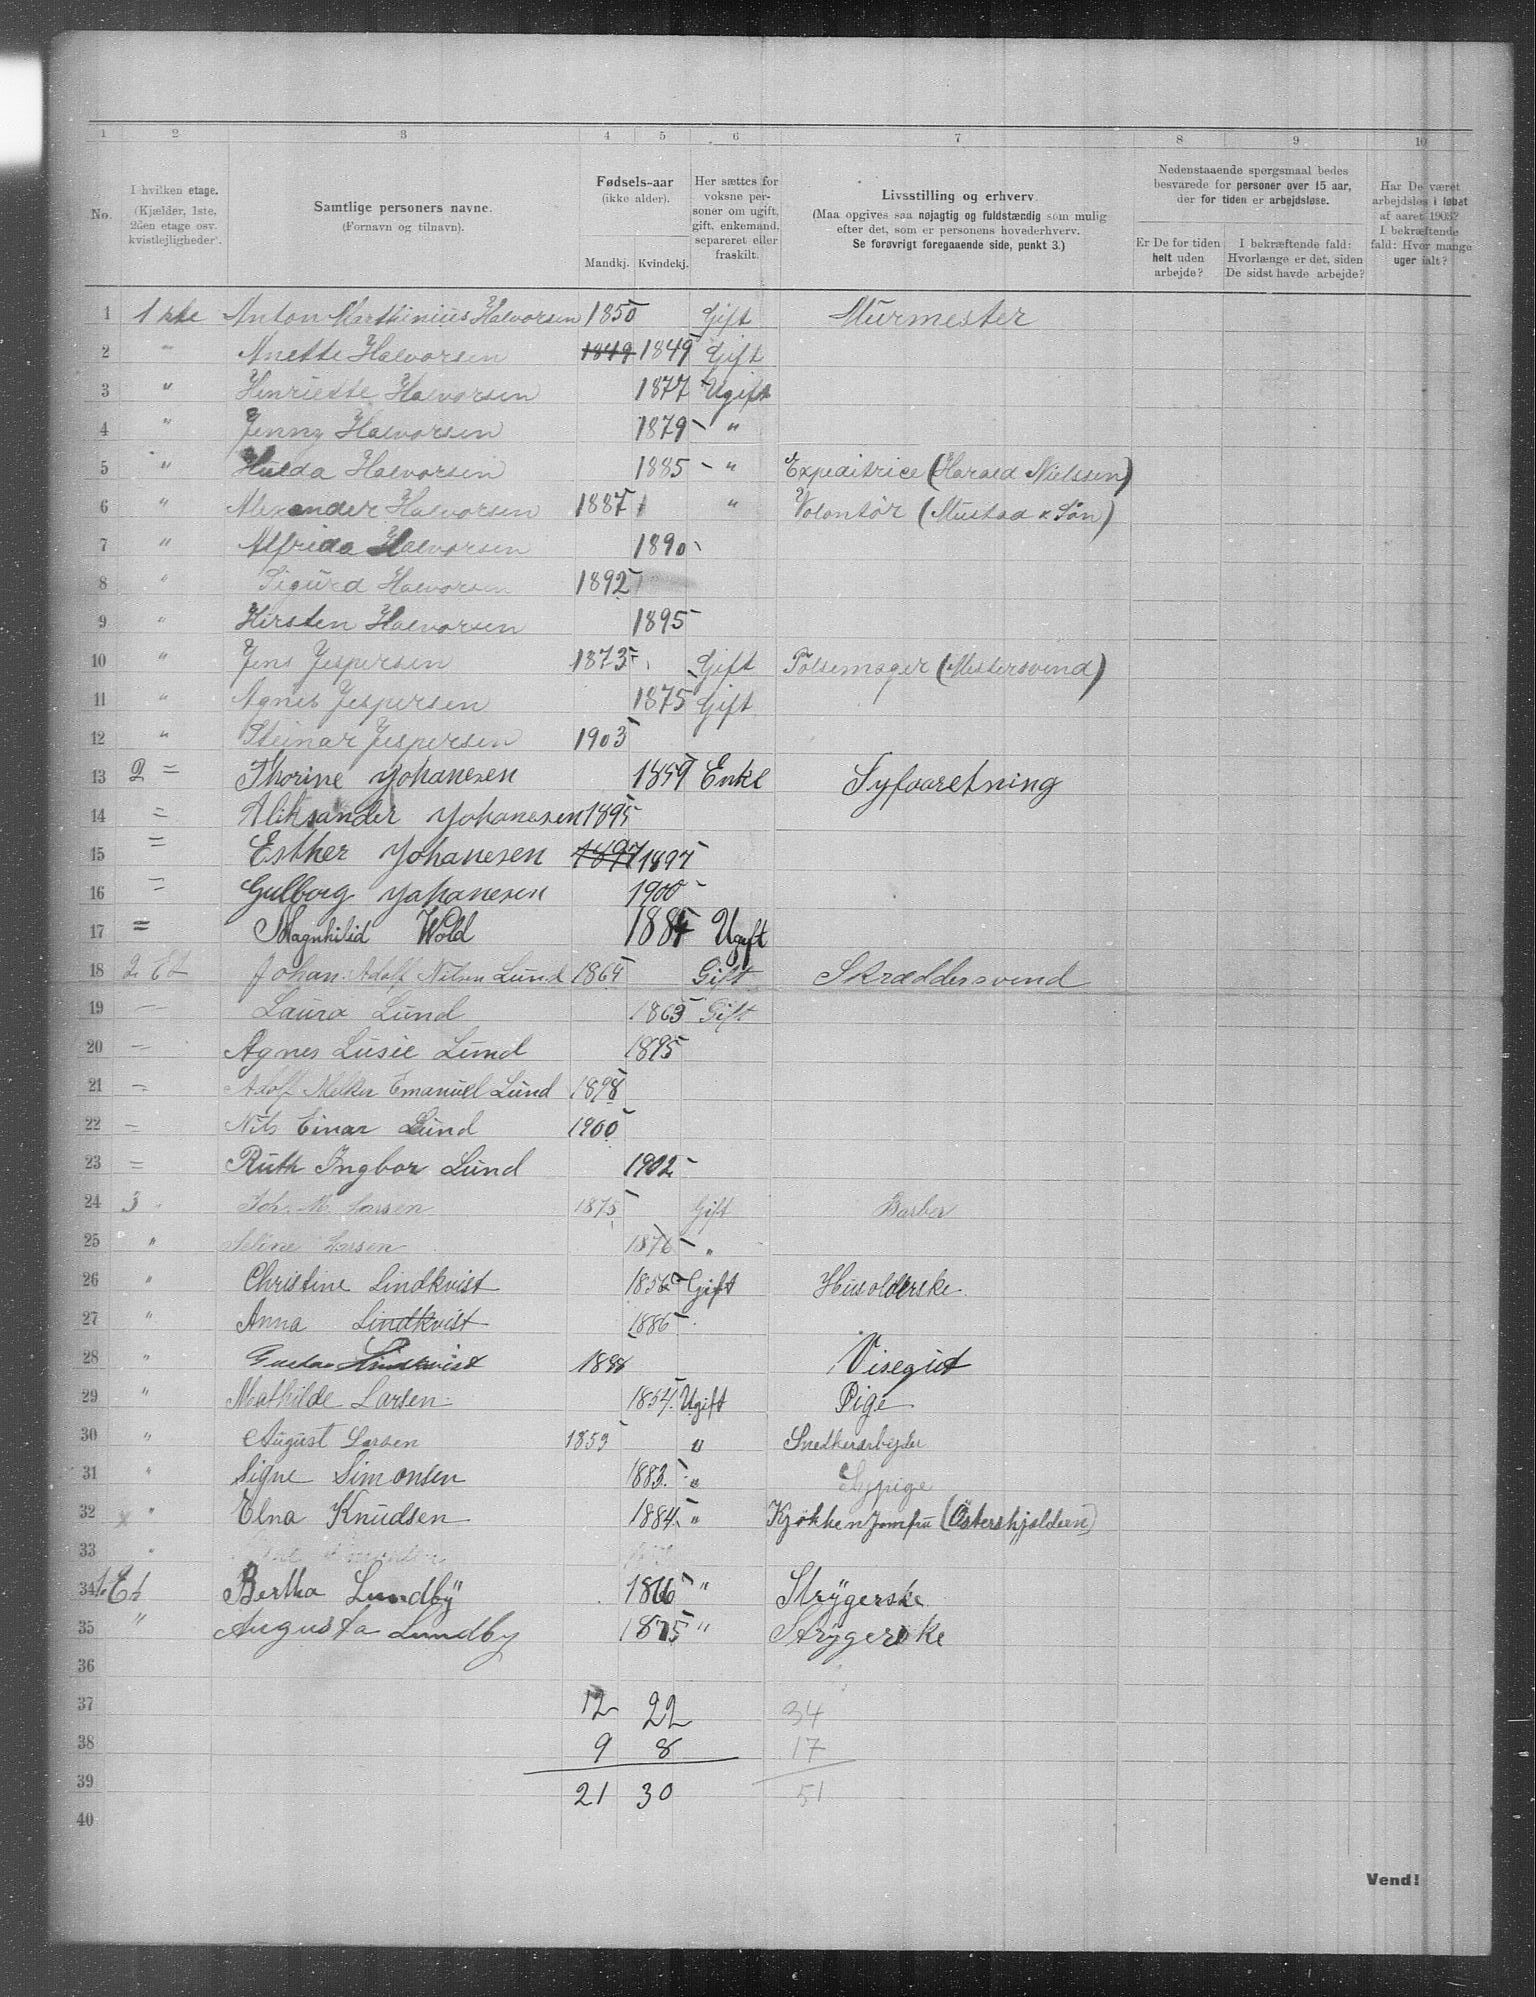 1 2 3 4 5 6 7 8 9 10
No.
I hvilken etage.
(Kjælder, 1ste, 2den etage osv. kvistlejligheder).
Samtlige personers navne.
(Fornavn og tilnavn).
Fødsels-aar
(ikke alder).
Mandkj. Kvindekj.
Her sættes for voksne personer om ugift, gift, enkemand, separeret eller fraskilt.
Livsstilling og erhverv.
(Maa opgives saa nøjagtig og fuldstændig som mulig efter det, som er personens hovederhverv.
Se forøvrigt foregaaende side, punkt 3.)
Nedenstaaende spørgsmaal bedes besvarede for personer over 15 aar, der for tiden er arbejdsløse.
Er De for tiden helt uden arbejde?
I bekræftende fald: Hvorlænge er det, siden De sidst havde arbejde?
Har De været arbejdsløs i løbet af aaret 1903?
I bekræftende fald: Hvor mange uger ialt?
1 1ste Anton Marthinius Halvorsen 1850 Gift Murmester
2 " Anette Halvorsen 1849 1849 Gift
3 " Henriette Halvorsen 1877 Ugift
4 " Jenny Halvorsen 1879 "
5 " Hulda Halvorsen 1885 " Expeditrice (Harald Nielssen)
6 " Alexander Halvorsen 1887 " Volontør (Mustad & Søn)
7 " Alfrida Halvorsen 1890
8 " Sigurd Halvorsen 1892
9 " Kirsten Halvorsen 1895
10 " Jens Jespersen 1873 Gift Pølsemager (Mestersvend)
11 " Agnes Jespersen 1875 Gift
12 " Steinar Jespersen 1903
13 2 = Thorine Johanesen 1859 Enke Syforretning
14 = Aliksander Johanesen 1895
15 = Esther Johanesen 1897 1897
16 = Gulborg Johanesen 1900
17 = Magnhild Wold 1884 Ugift
18 2 Et Johan Adolf Nilsen Lund 1864 Gift Skræddersvend
19 — Laura Lund 1863 Gift
20 — Agnes Lusie Lund 1895
21 — Adolf Melker Emanuel Lund 1898
22 — Nils Einar Lund 1900
23 = Ruth Ingbor Lund 1902
24 3 Joh. M. Larsen 1875 Gift Barber
25 " Seline Larsen 1876 "
26 " Christine Lindkvist 1856 Gift Husolderske
27 " Anna Lindkvist 1886
28 " Gustav Lindkvist 1898 Visegut
29 " Mathilde Larsen 1854 Ugift Pige
30 " August Larsen 1859 " Snedkerarbejder
31 " Signe Simonsen 1883 " Sypige
32 x " Elna Knudsen 1884 " Kjøkkenjomfru (Østershjælderen)
33
34 1. Et Bertha Lundby 1866 " Strygerske
35 " Augusta Lundby 1875 " Strygerske
36
37 12 22 34
38 9 8 17
39 21 30 51
40
Vend!